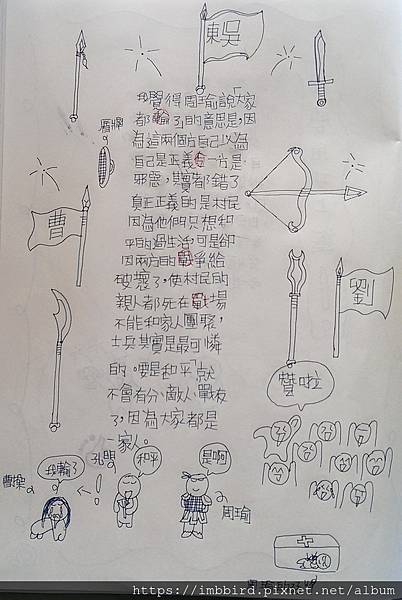 東吳
我覺得周瑜說「大家
都輸了」的意思是,因
為這兩個方自己以為
自己是正義另一方是
邪惡,其實都錯了
真正正義的是村民
因為他們只想和
平的過生活,可是卻
因兩方的戰爭給
破壞了,使村民的
親人都死在戰場
不能和家人團聚,
士兵其實是最可憐
的。要是和平就
不會有分敵人、戰友
了,因為大家都是
一家人。
盾牌
曹
劉
讚啦
曹操
我輸了
孔明
和平
是啊
周瑜
https://imbbird.pixnet.net/album